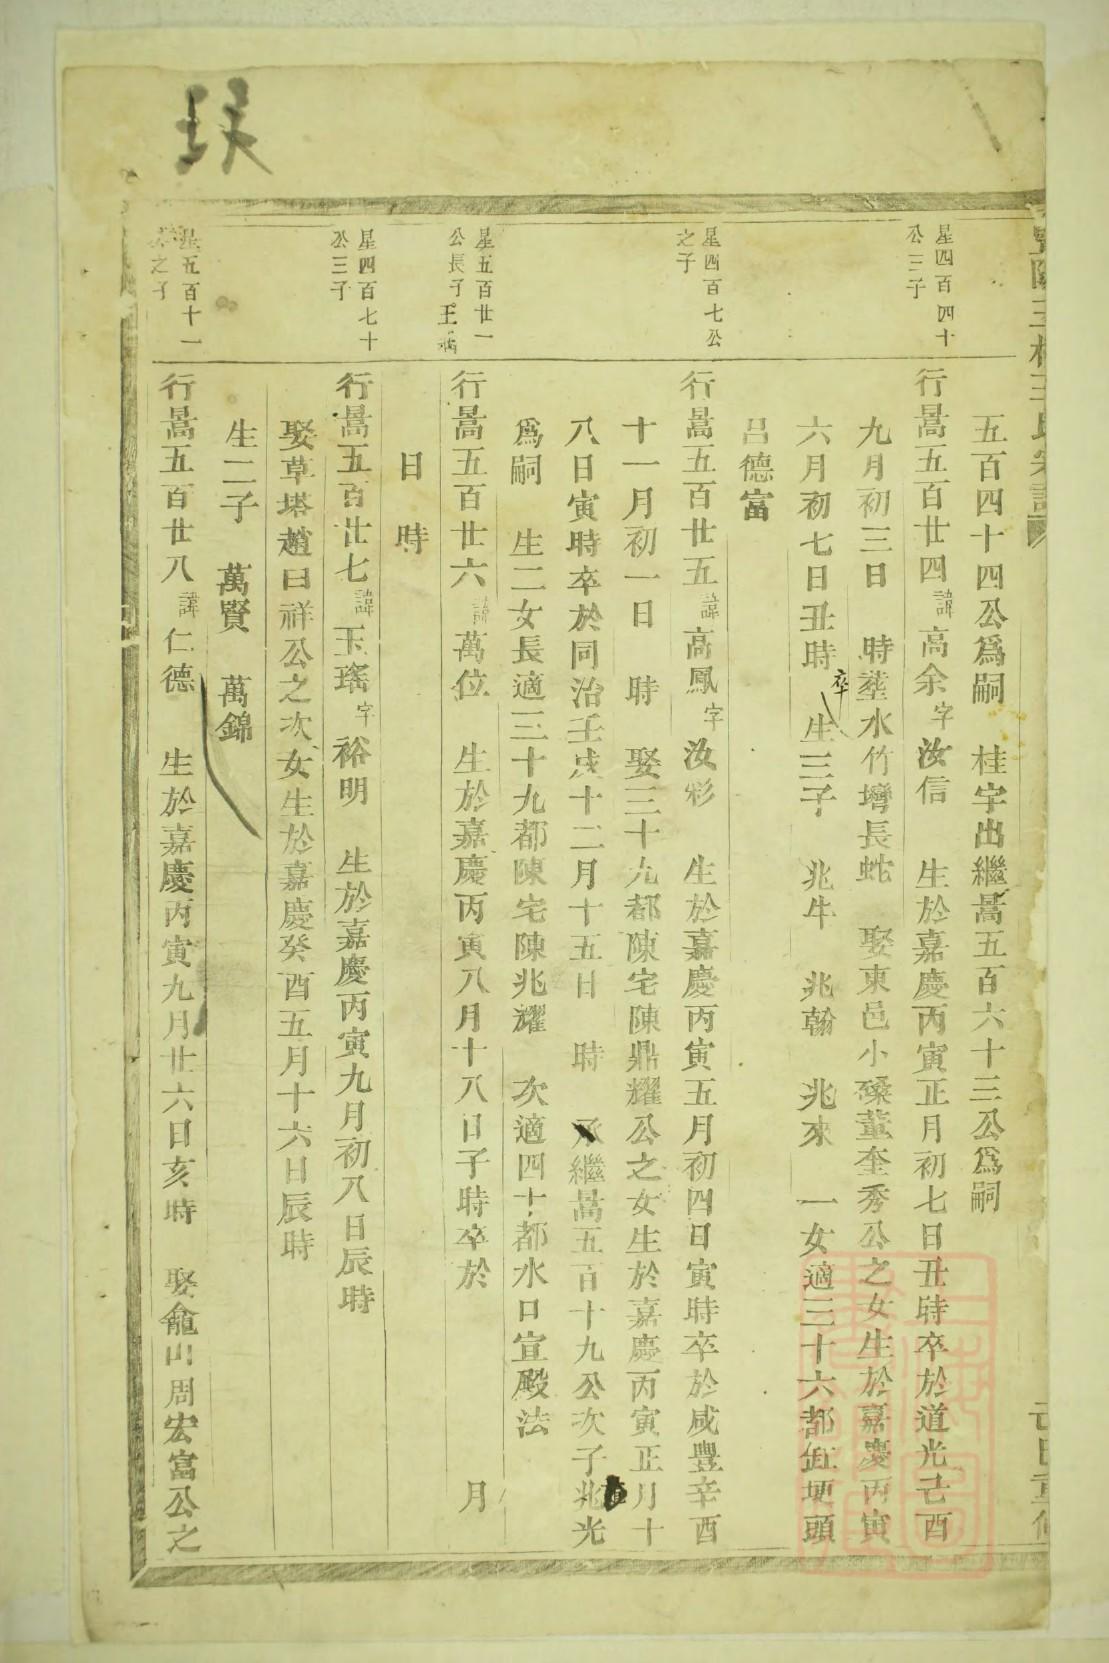 五百四十四公爲嗣　桂字出繼暠五百六十三公爲嗣
星四百四十
公三子
行暠五百廿四諱高余字汝信　生於嘉慶丙寅正月初七日丑時卒於道光己酉
九月初三日　時塟水竹塆長蛇　娶東邑小磉董奎秀公之女生於嘉慶丙寅
六月初七日丑時　卒　生三子　兆牛　兆翰　兆來　一女適三十六都缸埂頭
呂德富
星四百七公
之子
行暠五百廿五諱高鳳字汝彩　生於嘉慶丙寅五月初四日寅時卒於咸豐辛酉
十一月初一日　時　娶三十九都陳宅陳鼎耀公之女生於嘉慶丙寅正月十
八日寅時卒於同治壬戌十二月十五日　時　承繼暠五百十九公次子兆光
爲嗣　生二女長適三十九都陳宅陳兆耀　次適四十都水口宣殿法
星五百廿一
公長子
行暠五百廿六諱萬位　生於嘉慶丙寅八月十八日子時卒於　月
日　時
星四百七十
公三子
行暠五百廿七諱玉瑤字裕明　生於嘉慶丙寅九月初八日辰時
娶草塔趙曰祥公之次女生於嘉慶癸酉五月十六日辰時
生二子　萬賢　萬錦
星五百十一
之子
行暠五百廿八諱仁德　生於嘉慶丙寅九月廿六日亥時　娶龕山周宏富公之